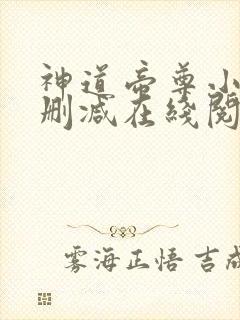 神道帝尊小
删减在线阅
雾海正悟 吉成